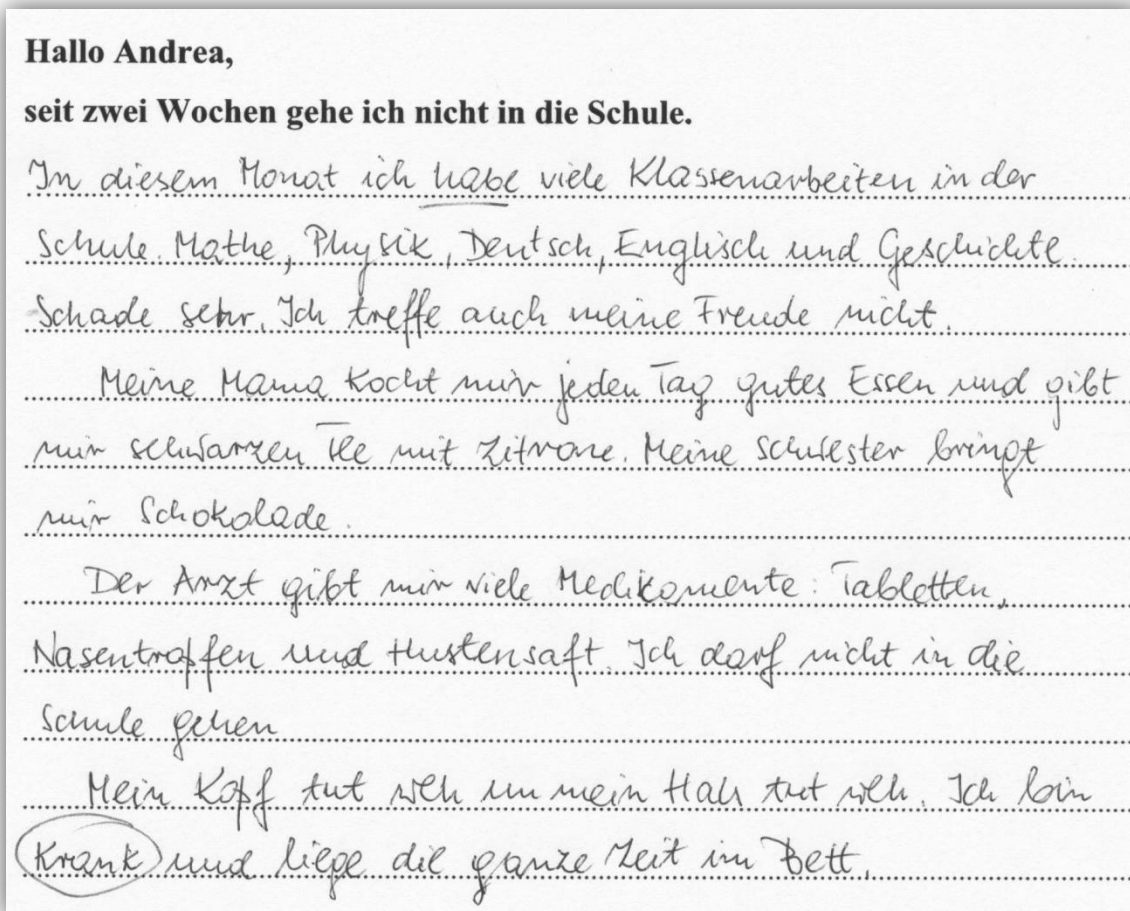 Hallo Andrea,
seit zwei Wochen gehe ich nicht in die Schule.
In diesem Monat ich habe viele Klassenarbeiten in der
Schule. Mathe, Physik, Deutsch, Englisch und Geschichte.
Schade sehr. Ich treffe auch meine Freude nicht.
Meine Mama kocht mir jeden Tag gutes Essen und gibt
mir schwarzen Tee mit Zitrone. Meine Schwester bringt
mir Schokolade.
Der Arzt gibt mir viele Medikamente: Tabletten,
Nasentropfen und Hustensaft. Ich darf nicht in die
Schule gehen
Mein Kopf tut weh un mein Hals tut weh. Ich bin
krank und liege die ganze Zeit im Bett.